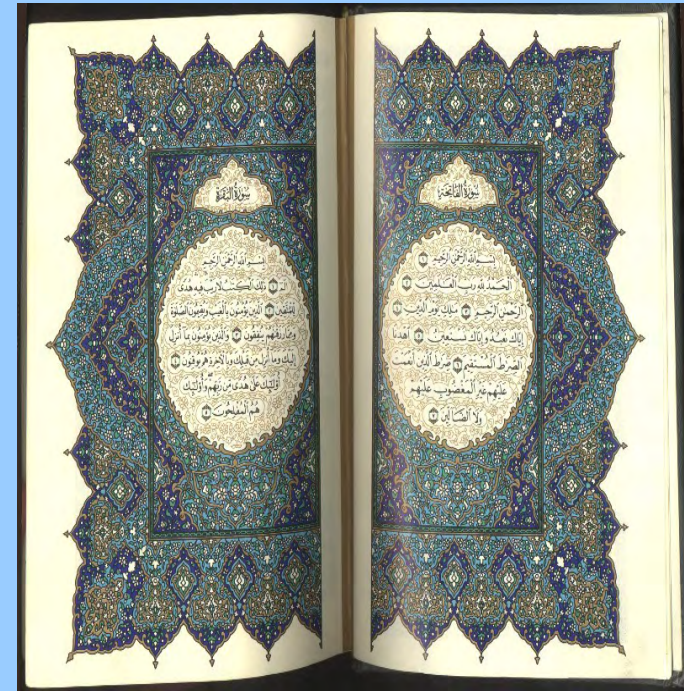 سُورَةُ الفَاتِحَةِ
بِسْمِ اللَّهِ الرَّحْمَٰنِ الرَّحِيمِ ۝١
الْحَمْدُ لِلَّهِ رَبِّ الْعَٰلَمِينَ ۝٢
الرَّحْمَٰنِ الرَّحِيمِ ۝٣ مَٰلِكِ يَوْمِ الدِّينِ ۝٤
إِيَّاكَ نَعْبُدُ وَإِيَّاكَ نَسْتَعِينُ ۝٥ اهْدِنَا
الصِّرَٰطَ الْمُسْتَقِيمَ ۝٦ صِرَٰطَ الَّذِينَ أَنْعَمْتَ
عَلَيْهِمْ غَيْرِ الْمَغْضُوبِ عَلَيْهِمْ
وَلَا الضَّالِّينَ ۝٧
سُورَةُ البَقَرَةِ
بِسْمِ اللَّهِ الرَّحْمَٰنِ الرَّحِيمِ
الٓمٓ ۝١ ذَٰلِكَ الْكِتَٰبُ لَا رَيْبَ فِيهِ هُدًى
لِلْمُتَّقِينَ ۝٢ الَّذِينَ يُؤْمِنُونَ بِالْغَيْبِ وَيُقِيمُونَ الصَّلَوٰةَ
وَمِمَّا رَزَقْنَٰهُمْ يُنْفِقُونَ ۝٣ وَالَّذِينَ يُؤْمِنُونَ بِمَا أُنْزِلَ
إِلَيْكَ وَمَا أُنْزِلَ مِنْ قَبْلِكَ وَبِالْآخِرَةِ هُمْ يُوقِنُونَ ۝٤
أُو۟لَٰٓئِكَ عَلَىٰ هُدًى مِنْ رَبِّهِمْ وَأُو۟لَٰٓئِكَ
هُمُ الْمُفْلِحُونَ ۝٥